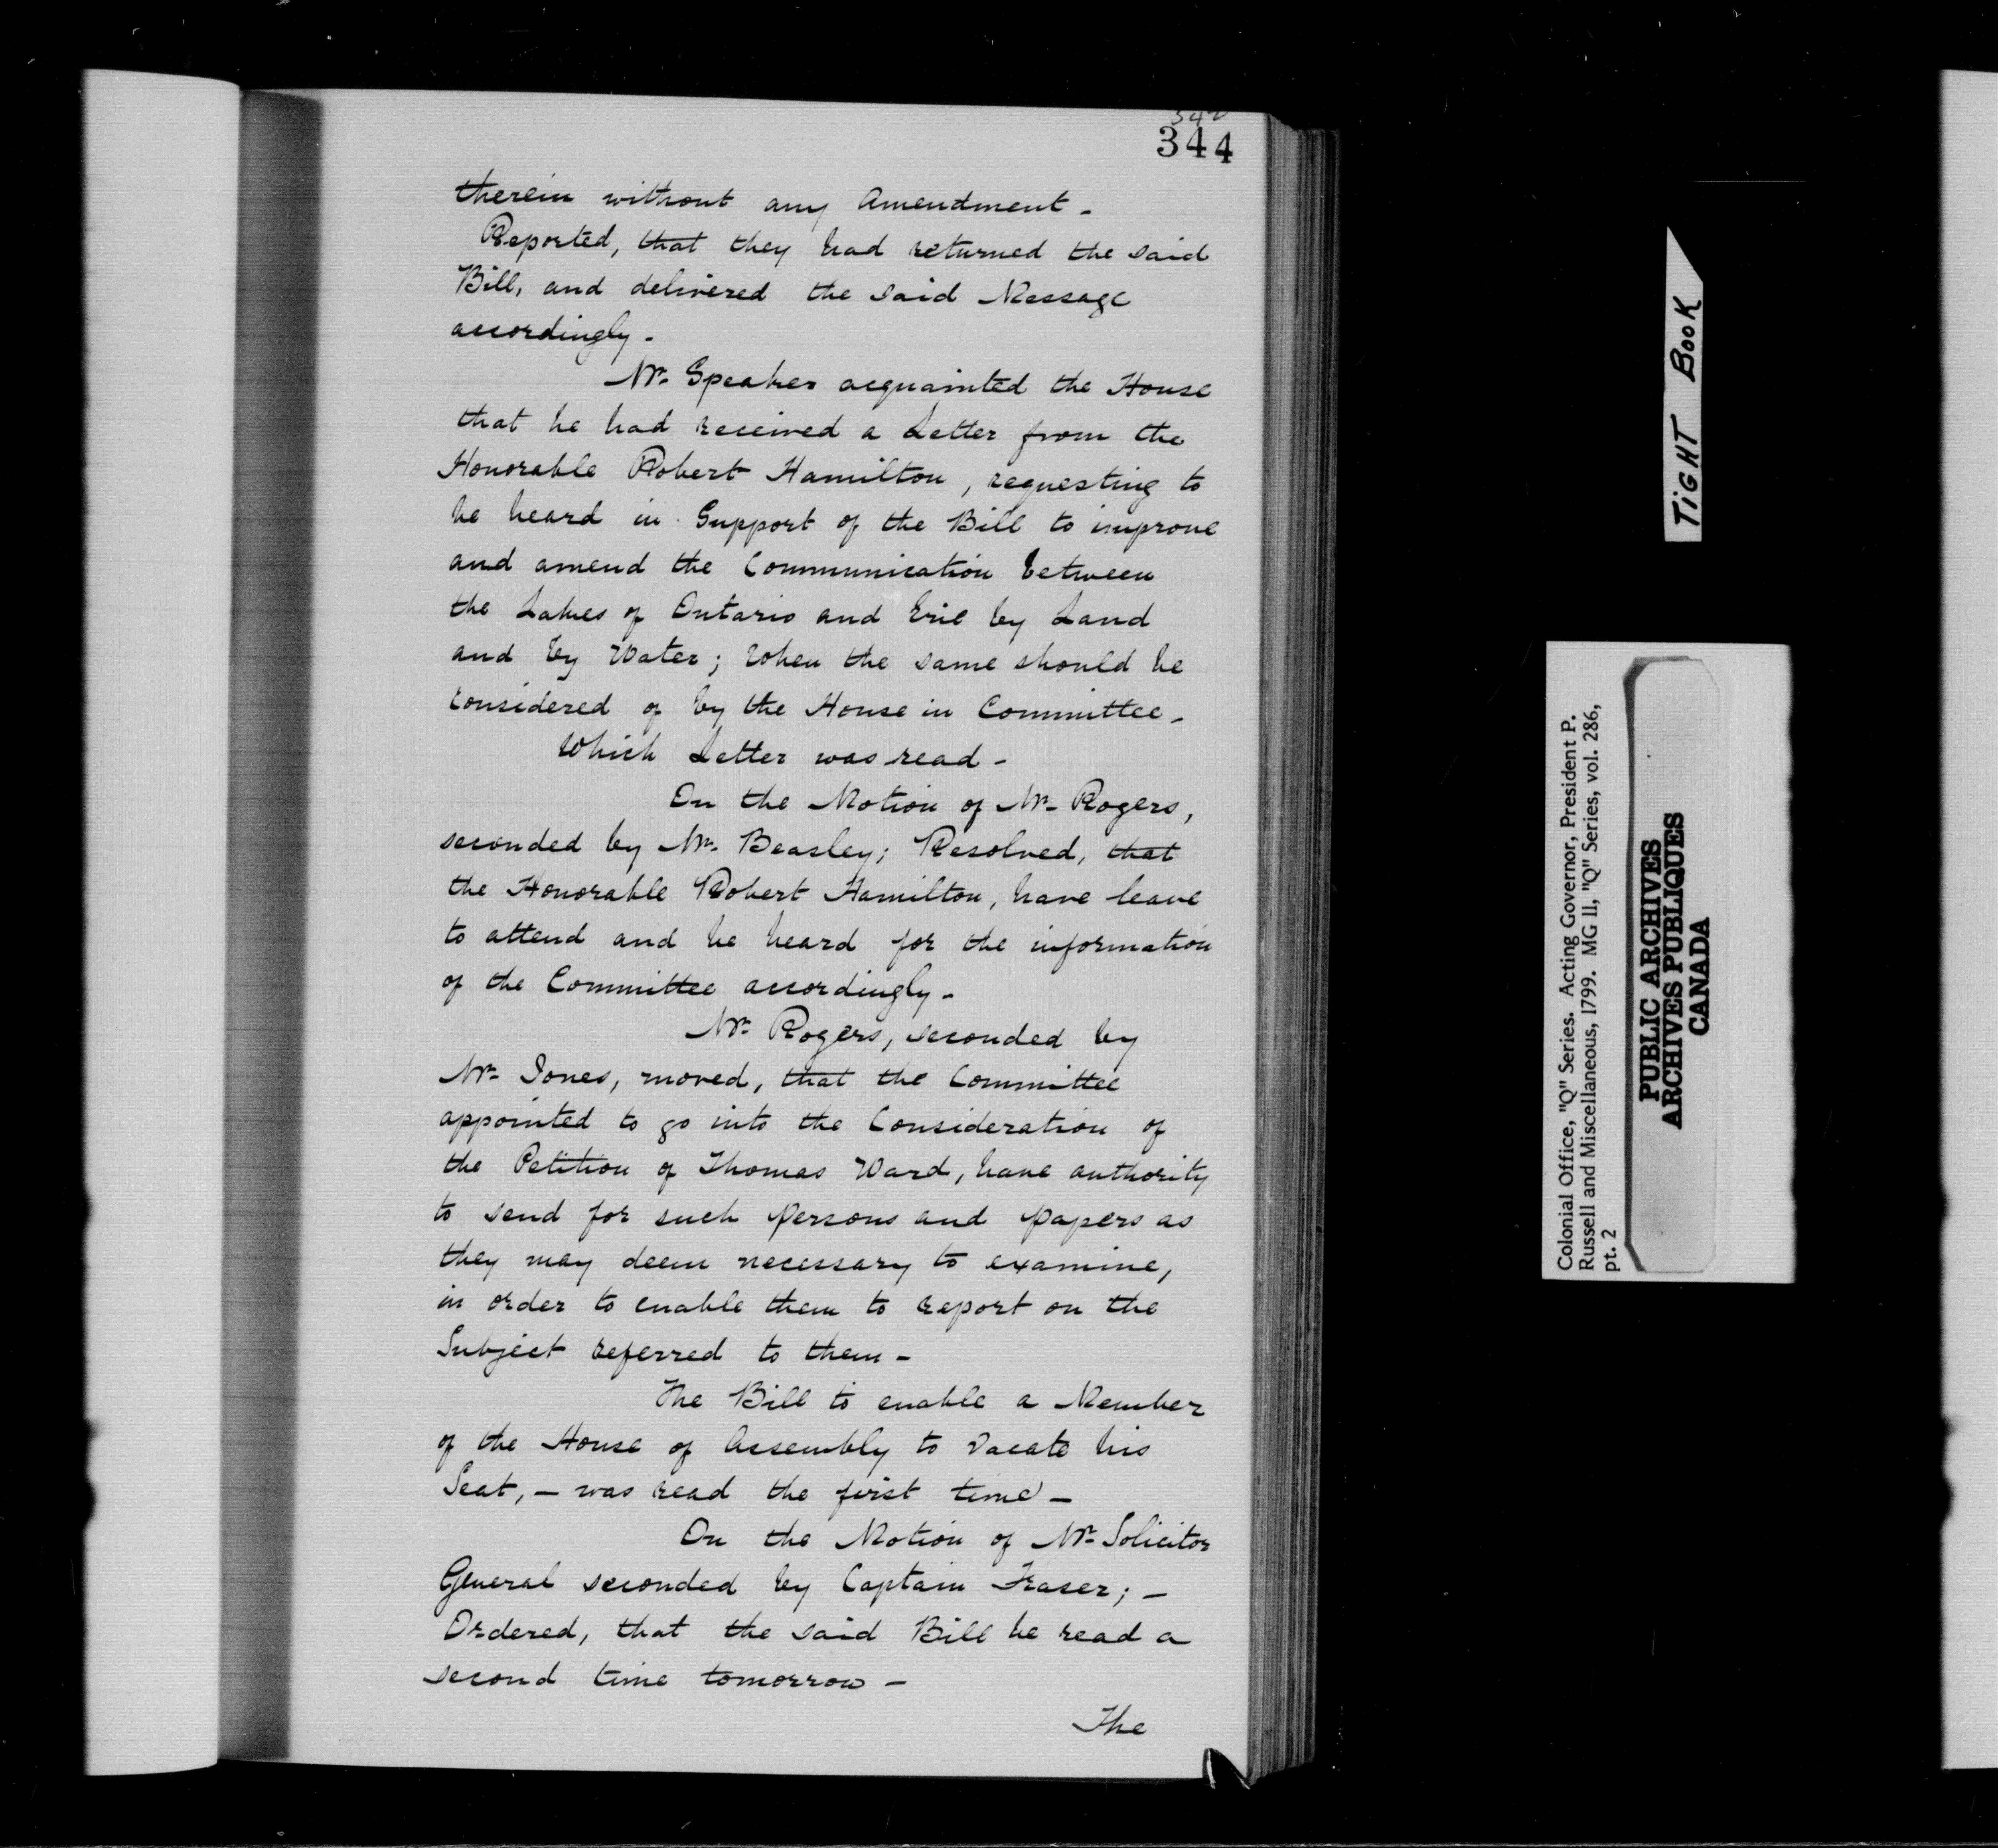 342
344
therein without any Amendment -
Reported, that they had returned the said
Bill, and delivered the said Message
accordingly -
Mr. Speaker acquainted the House
that he had received a Letter from the
Honorable Robert Hamilton, requesting to
be heard in Support of the Bill to improve
and amend the Communication between
the Lakes of Ontario and Erie by Land
and by Water; When the same should be
considered of by the House in Committee -
Which Letter was read -
On the Motion of Mr. Rogers,
seconded by Mr. Beasley; Resolved, that
the Honorable Robert Hamilton, have leave
to attend and be heard for the information
of the Committee accordingly -
Mr. Rogers, seconded by
Mr. Jones, moved, that the Committee
appointed to go into the Consideration of
the Petition of Thomas Ward, have authority
to send for such persons and papers as
they may deem necessary to examine,
in order to enable them to report on the
Subject referred to them -
The Bill to enable a Member
of the House of Assembly to Vacate his
Seat, - was read the first time -
On the Motion of Mr. Solicitor
General seconded by Captain Fraser; -
Ordered, that the said Bill be read a
second time tomorrow -
The
TIGHT BOOK
Colonial Office, "Q" Series. Acting Governor, President P.
Russell and Miscellaneous, 1799. MG 11, "Q" Series, vol. 286,
pt. 2
PUBLIC ARCHIVES
ARCHIVES PUBLIQUES
CANADA